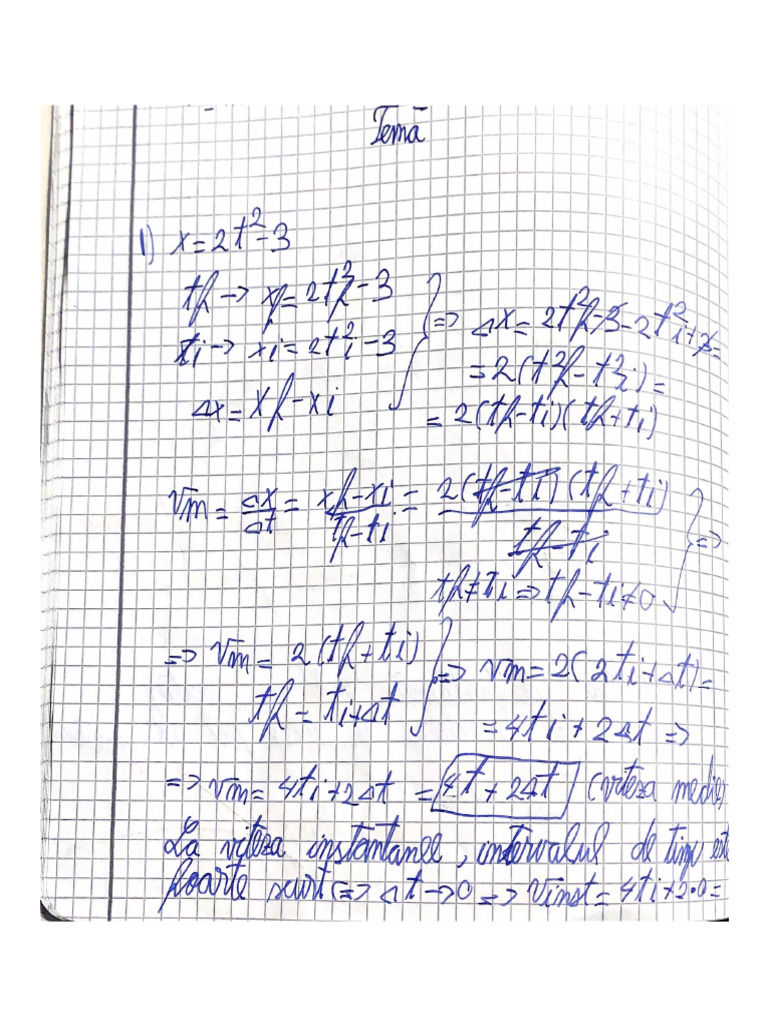 Temă
1) x = 2t² - 3
tf → xf = 2tf² - 3
ti → xi = 2ti² - 3
Δx = xf - xi
} => Δx = 2tf² - 3 - 2ti² + 3 =
= 2(tf² - ti²) =
= 2(tf - ti)(tf + ti)
vm = Δx/Δt = (xf - xi)/(tf - ti) = 2(tf - ti)(tf + ti)/(tf - ti)
tf ≠ ti => tf - ti ≠ 0 } =>
=> vm = 2(tf + ti)
tf = ti + Δt
} => vm = 2(2ti + Δt) =
= 4ti + 2Δt =>
=> vm = 4ti + 2Δt = 4t + 2Δt (viteza medie)
La viteza instantanee, intervalul de timp este
foarte scurt => Δt → 0 => vinst = 4ti + 2·0 =